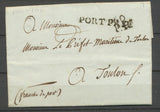 PORT PAYÉ
A Monsieur
Monsieur Le Préfet Maritime de Toulon
A Toulon
(franc de port)